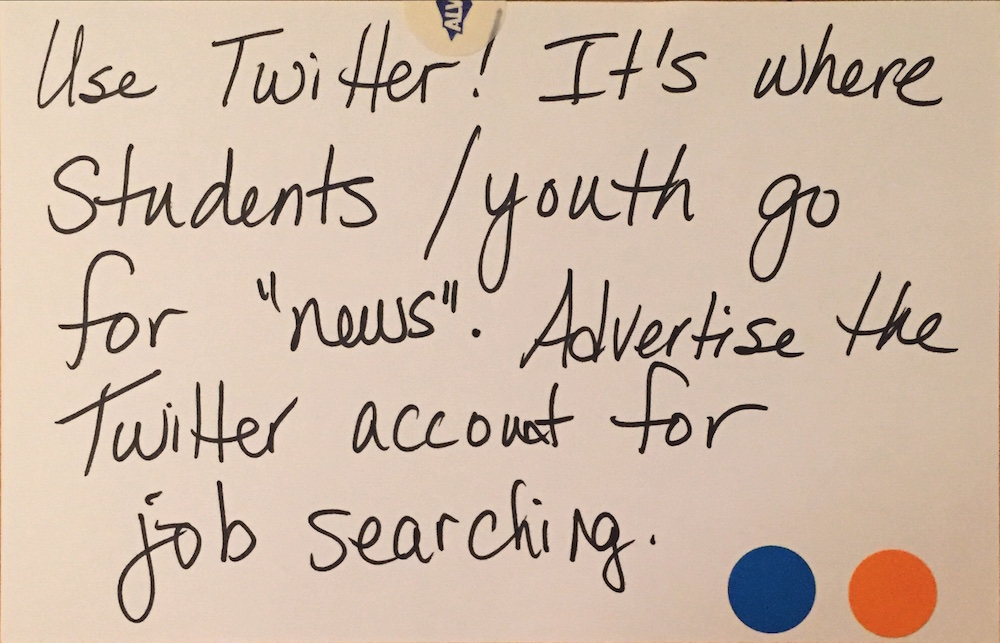 ALV
Use Twitter! It's where
Students / youth go
for "news". Advertise the
Twitter account for
job searching.